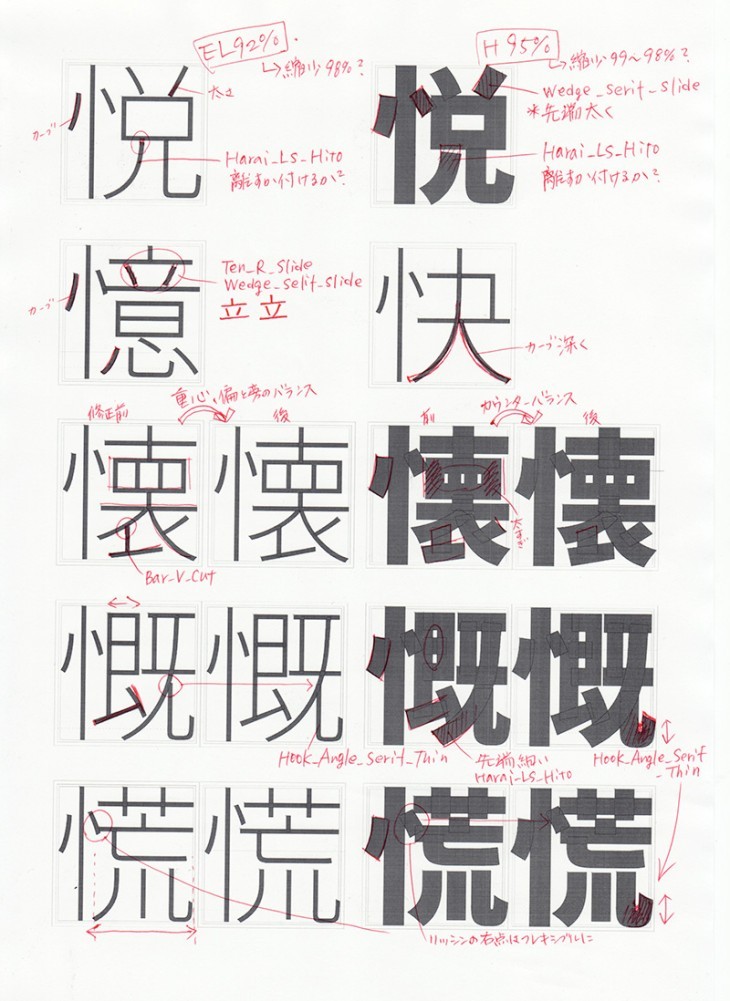 EL92%
↳縮少98%?
H95%
↳縮少99〜98%?
悦
カーブ
太さ
Harai_Ls_Hito
離すか付けるか?
悦
Wedge_Serif_Slide
*先端太く
Harai_Ls_Hito
離すか付けるか?
憶
カーブ
Ten_R_Slide
Wedge_Selif_Slide
立 立
快
カーブ深く
重心、偏と旁のバランス
修正前
後
懐 懐
Bar_V_Cut
カウンターバランス
前
後
懐 懐
太すぎ
慨 慨
Hook_Angle_Serif_Thin
慨 慨
先端細い
Harai_Ls_Hito
Hook_Angle_Serif
_Thin
慌 慌
慌 慌
リッシンの右点はフレキシブルに